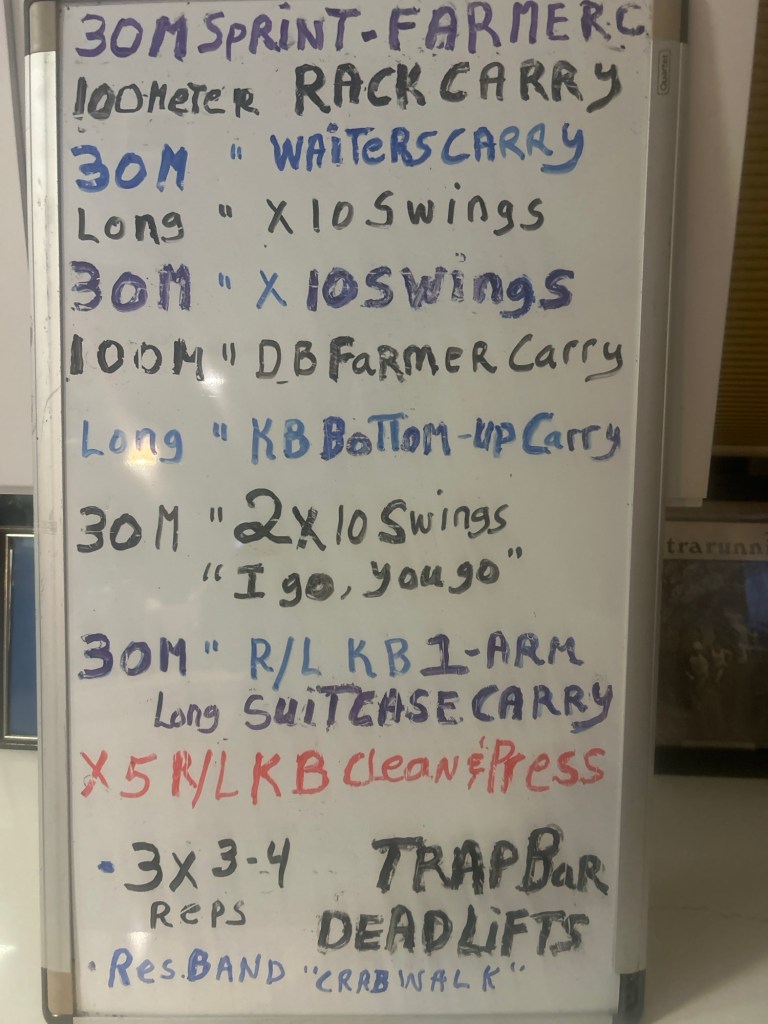 30M SPRINT - FARMER C
100 METER RACK CARRY
30M " WAITERS CARRY
Long " X 10 Swings
30M " X 10 Swings
100M " DB FARMER Carry
Long " KB BOTTOM-UP Carry
30M " 2X10 Swings
"I go, you go"
30M " R/L KB 1-ARM
Long SUITCASE CARRY
X5 R/L KB Clean & Press
• 3X 3-4 TRAP BaR
REPS DEADLIFTS
• Res. BAND "CRAB WALK"
Quartet
trarunni